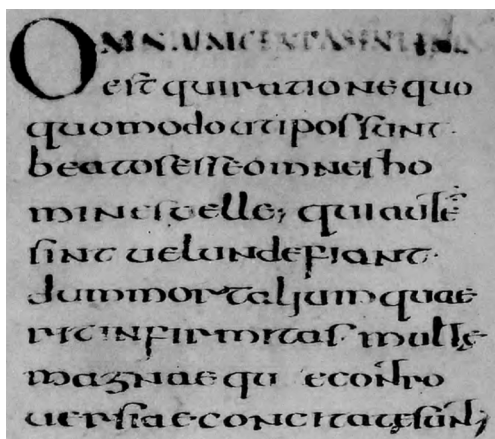 OMNIUM CERTA
est qui ratione quo
quo modo uti possunt·
beatos esse omnes ho
mines uelle; qui aut̄
sint uel unde fiant·
dum mortalium quae
rit infirmitas· multę
magnae qu e contro
uersiae concitatę sunt;